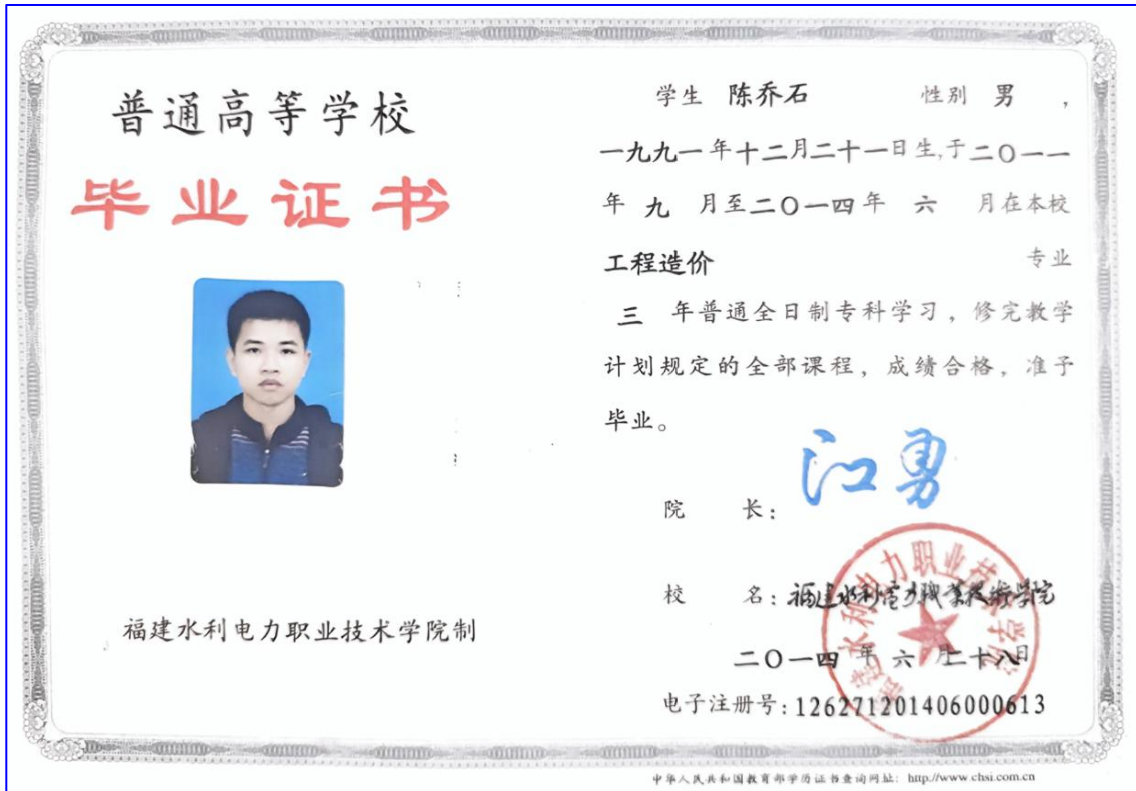 普通高等学校
毕业证书
福建水利电力职业技术学院制
学生 陈乔石 性别 男 ,
一九九一年十二月二十一日生,于二〇一一
年 九 月至二〇一四年 六 月在本校
工程造价 专业
三 年普通全日制专科学习，修完教学
计划规定的全部课程，成绩合格，准予
毕业。
院 长: 江勇
校 名: 福建水利电力职业技术学院
福建水利电力职业技术学院
二〇一四 年 六 月二十八日
电子注册号: 126271201406000613
中华人民共和国教育部学历证书查询网址: http://www.chsi.com.cn